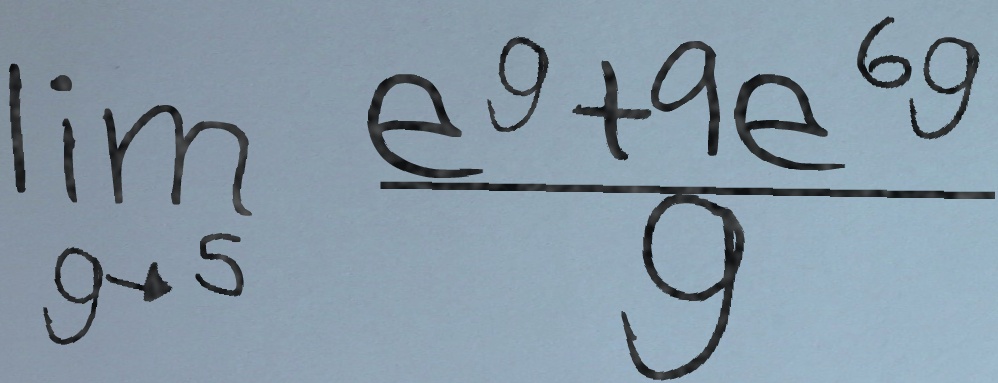 \lim_{g \to 5} \frac{e^{g} + 9e^{6g}}{g}